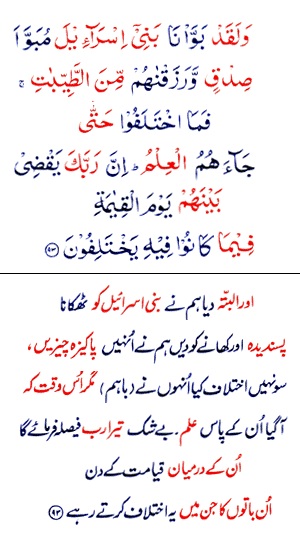 وَلَقَدْ بَوَّاْنَا بَنِيْۤ اِسْرَآءِيْلَ مُبَوَّاَ
صِدْقٍ وَّرَزَقْنٰهُمْ مِّنَ الطَّيِّبٰتِ ۚ
فَمَا اخْتَلَفُوْا حَتّٰى
جَآءَهُمُ الْعِلْمُ ؕ اِنَّ رَبَّكَ يَقْضِيْ
بَيْنَهُمْ يَوْمَ الْقِيٰمَةِ
فِيْمَا كَانُوْا فِيْهِ يَخْتَلِفُوْنَ ﴿۹۳﴾
اور البتّہ دیا ہم نے بنی اسرائیل کو ٹھکانا
پسندیدہ اور کھانے کو دیں ہم نے اُنہیں پاکیزہ چیزیں،
سو نہیں اختلاف کیا اُنہوں نے (باہم) مگر اُس وقت کہ
آ گیا اُن کے پاس علم۔ بے شک تیرا رب فیصلہ فرمائے گا
اُن کے درمیان قیامت کے دن
اُن باتوں کا جن میں یہ اختلاف کرتے رہے ﴿۹۳﴾